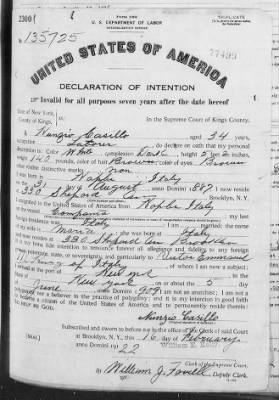 2300
U. S. DEPARTMENT OF LABOR
NATURALIZATION SERVICE
TRIPLICATE
No. 135725
77499
UNITED STATES OF AMERICA
DECLARATION OF INTENTION
Invalid for all purposes seven years after the date hereof
State of New York,
County of Kings,
In the Supreme Court of Kings County.
I, Nunzio Casillo aged 34 years,
occupation Laborer, do declare on oath that my personal
description is: Color White, complexion Dark, height 5 feet inches,
weight 140 pounds, color of hair Brown, color of eyes Brown
other visible distinctive marks None
I was born in Naples Italy
on the 31 day of August, anno Domini 1887; I now reside
at 330 Shepard Ave Brooklyn, N.Y.
I emigrated to the United States of America from Naples Italy
on the vessel Campania; my last
foreign residence was Italy
wife is Maria; she was born in Italy
and now resides at 330 Shepard Ave Brooklyn
It is my bona fide intention to renounce forever all allegiance and fidelity to any foreign
prince, potentate, state, or sovereignty, and particularly to Victor Emmanuel
III King of Italy, of whom I am now a subject;
I arrived at the port of New York, in the
State of New York, on or about the 5 day
of June, anno Domini 1909; I am not an anarchist; I am not a
polygamist nor a believer in the practice of polygamy; and it is my intention in good faith
to become a citizen of the United States of America and to permanently reside therein:
SO HELP ME GOD.
Nunzio Casillo
Subscribed and sworn to before me in the office of the Clerk of said Court
[SEAL] at Brooklyn, N.Y., this 16 day of February
anno Domini 1922
Clerk of the Supreme Court.
By William J. Fowell, Deputy Clerk.